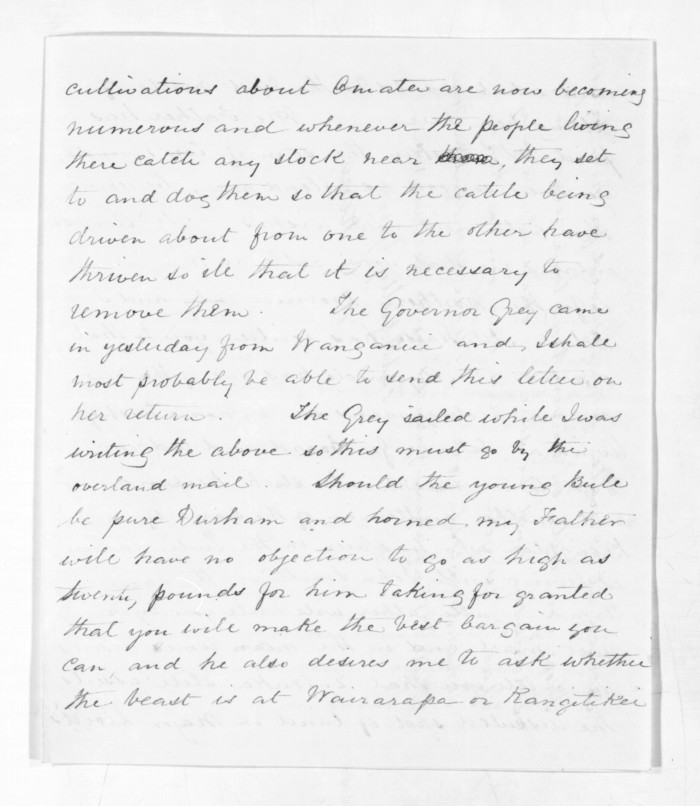 cultivations about Omata are now becoming
numerous and whenever the people living
there catch any stock near, they set
to and dog them so that the cattle being
driven about from one to the other have
thriven so ile that it is necessary to
remove them. The Governor Grey came
in yesterday from Wanganui and I shall
most probably be able to send this letter on
her return. The Grey sailed while I was
writing the above so this must go by the
overland mail. Should the young Bull
be pure Durham and horned my Father
will have no objection to go as high as
twenty pounds for him taking for granted
that you will make the best bargain you
can and he also desires me to ask whether
the beast is at Wairarapa or Rangitikei